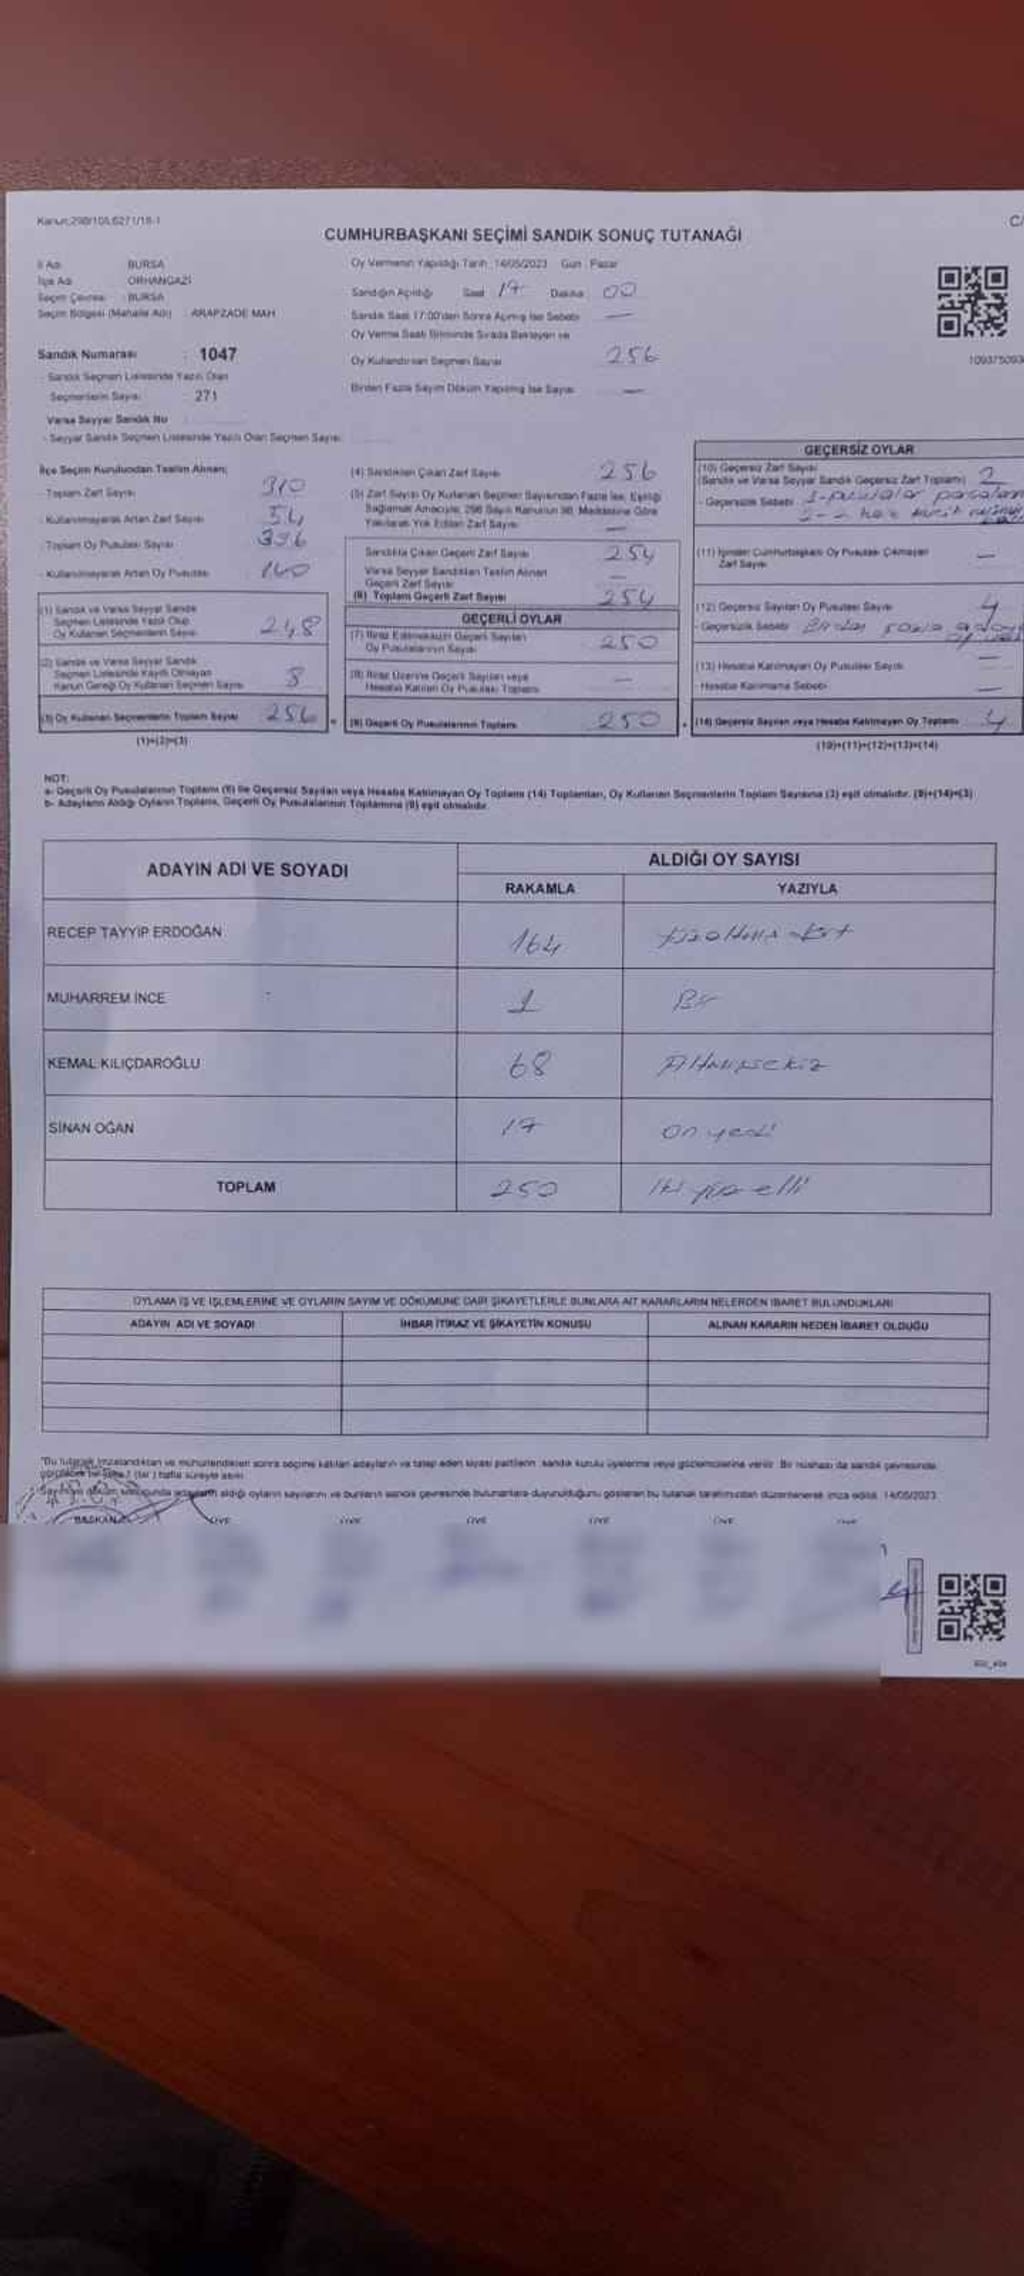 Kanun:298/105,6271/18-1
C/
CUMHURBAŞKANI SEÇİMİ SANDIK SONUÇ TUTANAĞI
İl Adı : BURSA
İlçe Adı : ORHANGAZİ
Seçim Çevresi : BURSA
Seçim Bölgesi (Mahalle Adı) : ARAPZADE MAH
Sandık Numarası : 1047
- Sandık Seçmen Listesinde Yazılı Olan
Seçmenlerin Sayısı 271
Varsa Seyyar Sandık No
- Seyyar Sandık Seçmen Listesinde Yazılı Olan Seçmen Sayısı
Oy Vermenin Yapıldığı Tarih : 14/05/2023 Gün : Pazar
Sandığın Açıldığı Saat 17 Dakika 00
Sandık Saat 17:00'den Sonra Açılmış İse Sebebi —
Oy Verme Saati Bitiminde Sırada Bekleyen ve
Oy Kullandırılan Seçmen Sayısı 256
Birden Fazla Sayım Döküm Yapılmış İse Sayısı —
İlçe Seçim Kurulundan Teslim Alınan;
- Toplam Zarf Sayısı 310
- Kullanılmayarak Artan Zarf Sayısı 54
- Toplam Oy Pusulası Sayısı
- Kullanılmayarak Artan Oy Pusulası 140
(1) Sandık ve Varsa Seyyar Sandık
Seçmen Listesinde Yazılı Olup
Oy Kullanan Seçmenlerin Sayısı 248
(2) Sandık ve Varsa Seyyar Sandık
Seçmen Listesinde Kayıtlı Olmayan
Kanun Gereği Oy Kullanan Seçmen Sayısı 8
(3) Oy Kullanan Seçmenlerin Toplam Sayısı 256
(1)+(2)=(3)
(4) Sandıktan Çıkan Zarf Sayısı 256
(5) Zarf Sayısı Oy Kullanan Seçmen Sayısından Fazla İse, Eşitliği
Sağlamak Amacıyla; 298 Sayılı Kanunun 98. Maddesine Göre
Yakılarak Yok Edilen Zarf Sayısı —
Sandıkta Çıkan Geçerli Zarf Sayısı 254
Varsa Seyyar Sandıktan Teslim Alınan
Geçerli Zarf Sayısı —
(6) Toplam Geçerli Zarf Sayısı 254
GEÇERLİ OYLAR
(7) İtiraz Edilmeksizin Geçerli Sayılan
Oy Pusulalarının Sayısı 250
(8) İtiraz Üzerine Geçerli Sayılan veya
Hesaba Katılan Oy Pusulası Toplamı —
(9) Geçerli Oy Pusulalarının Toplamı 250
GEÇERSİZ OYLAR
(10) Geçersiz Zarf Sayısı
(Sandık ve Varsa Seyyar Sandık Geçersiz Zarf Toplamı) 2
- Geçersizlik Sebebi
(11) İçinden Cumhurbaşkanı Oy Pusulası Çıkmayan
Zarf Sayısı —
(12) Geçersiz Sayılan Oy Pusulası Sayısı 4
- Geçersizlik Sebebi Birden fazla adaya
(13) Hesaba Katılmayan Oy Pusulası Sayısı —
- Hesaba Katılmama Sebebi —
(14) Geçersiz Sayılan veya Hesaba Katılmayan Oy Toplamı 4
(10)+(11)+(12)+(13)=(14)
NOT:
a- Geçerli Oy Pusulalarının Toplamı (9) ile Geçersiz Sayılan veya Hesaba Katılmayan Oy Toplamı (14) Toplamları, Oy Kullanan Seçmenlerin Toplam Sayısına (3) eşit olmalıdır. (9)+(14)=(3)
b- Adayların Aldığı Oyların Toplamı, Geçerli Oy Pusulalarının Toplamına (9) eşit olmalıdır.
ADAYIN ADI VE SOYADI ALDIĞI OY SAYISI
RAKAMLA YAZIYLA
RECEP TAYYİP ERDOĞAN 164
MUHARREM İNCE 1 Bir
KEMAL KILIÇDAROĞLU 68 Altmışsekiz
SİNAN OĞAN 17 on yedi
TOPLAM 250 iki yüz elli
OYLAMA İŞ VE İŞLEMLERİNE VE OYLARIN SAYIM VE DÖKÜMÜNE DAİR ŞİKAYETLERLE BUNLARA AİT KARARLARIN NELERDEN İBARET BULUNDUKLARI
ADAYIN ADI VE SOYADI İHBAR İTİRAZ VE ŞİKAYETİN KONUSU ALINAN KARARIN NEDEN İBARET OLDUĞU
"Bu tutanak imzalandıktan ve mühürlendikten sonra seçime katılan adayların ve talep eden siyasi partilerin sandık kurulu üyelerine veya gözlemcilerine verilir. Bir nüshası da sandık çevresinde
görülebilir bir yere 1 (bir) hafta süreyle asılır.
adayların aldığı oyların sayılarını ve bunların sandık çevresinde bulunanlara duyurulduğunu gösteren bu tutanak tarafımızdan düzenlenerek imza edildi. 14/05/2023
BAŞKAN ÜYE ÜYE ÜYE ÜYE ÜYE ÜYE